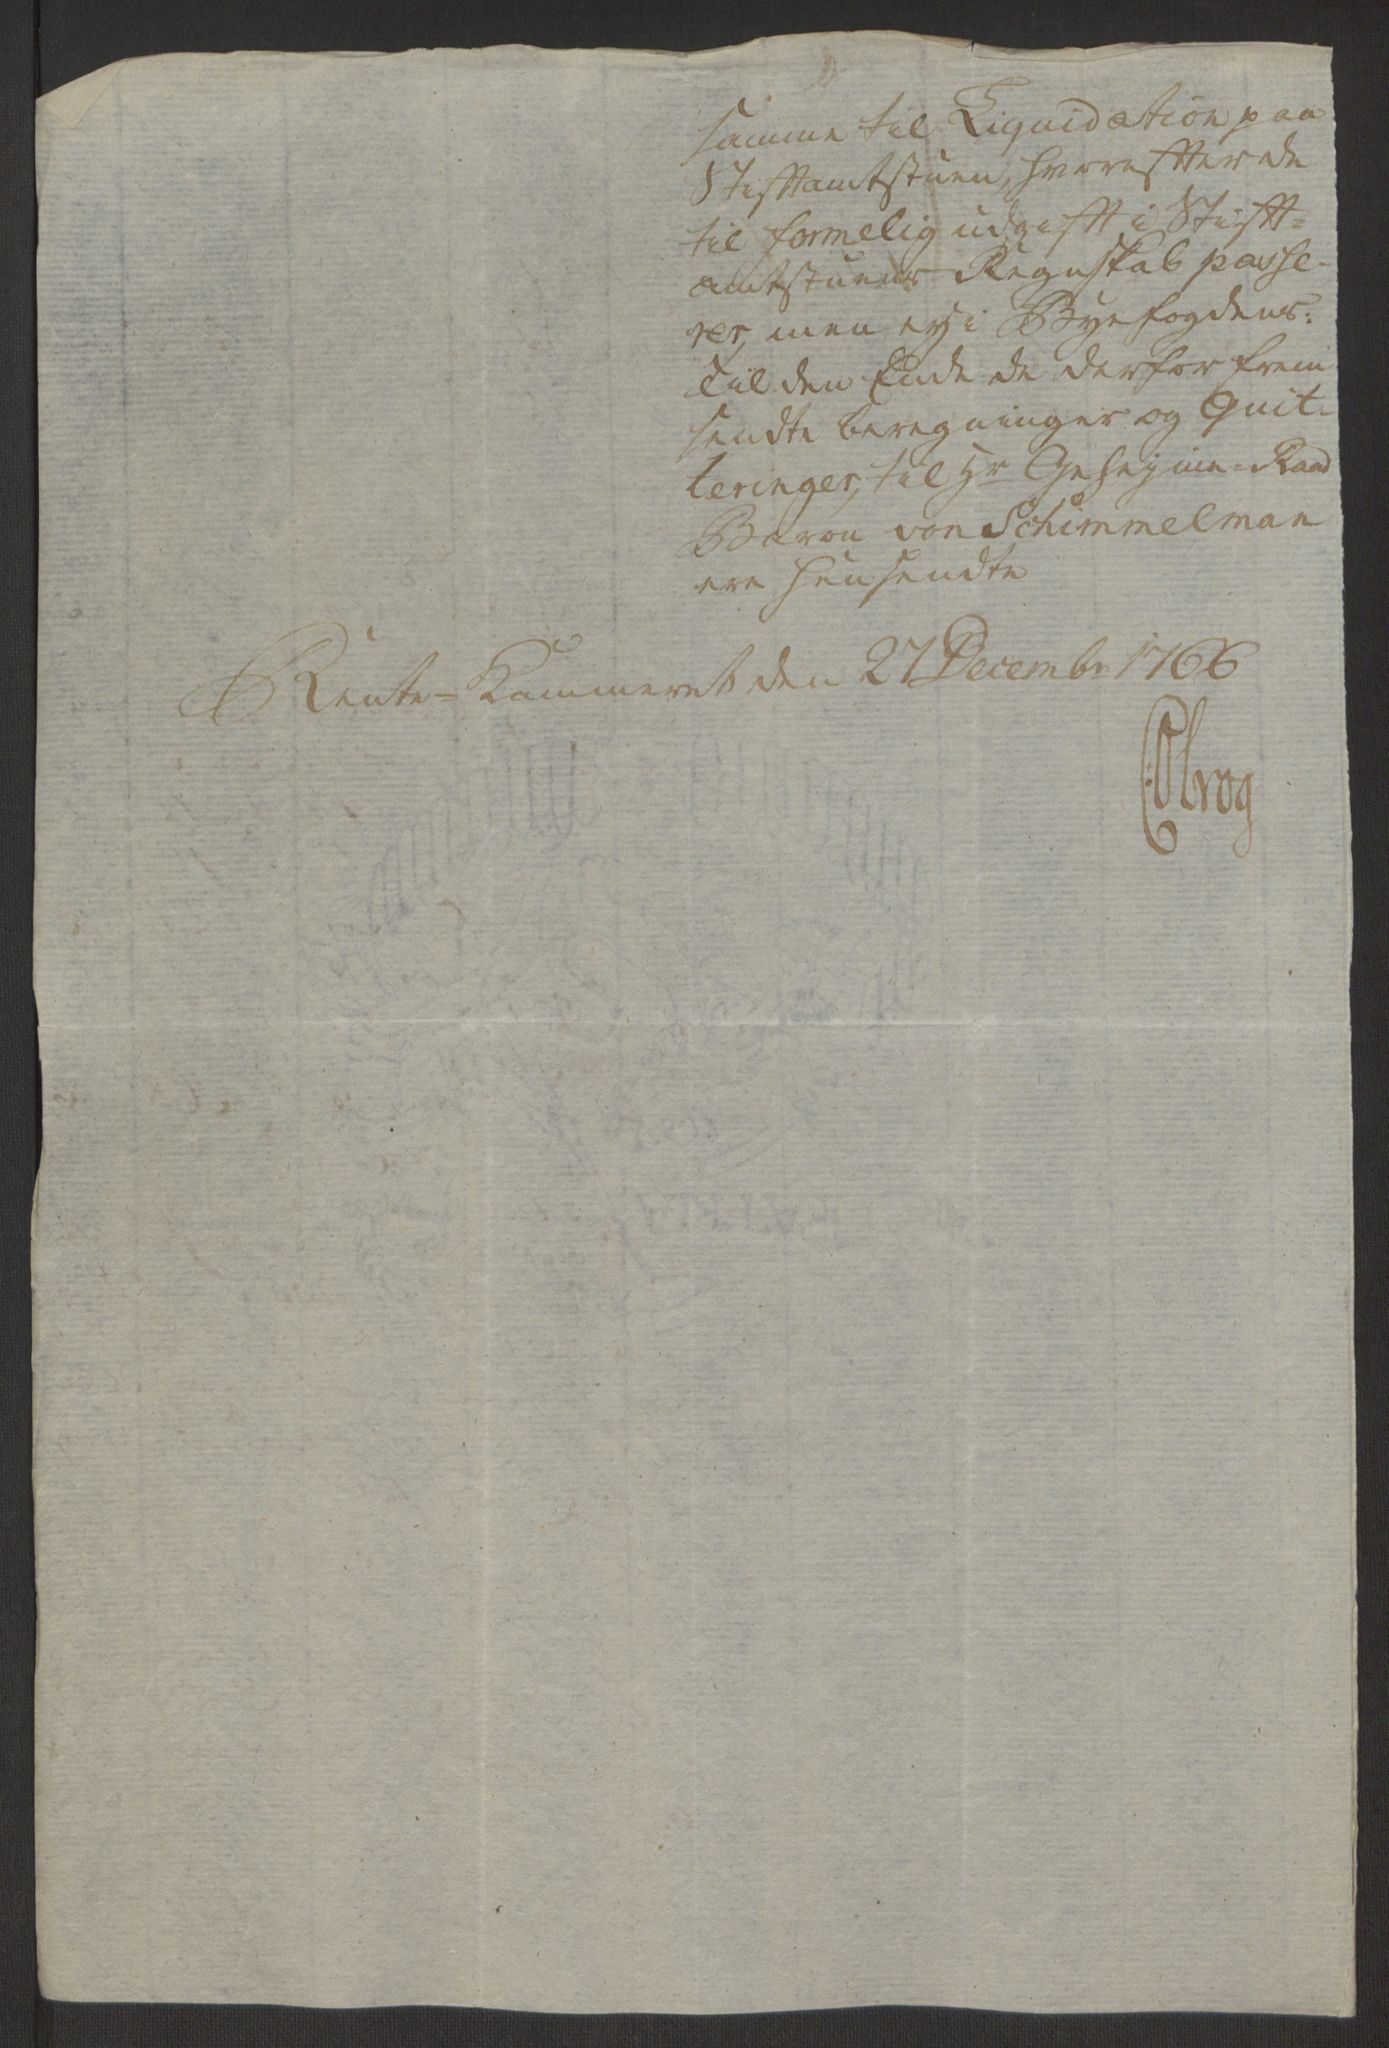 samme til Liquidation paa
Stifftamtstuen, hvorefter de
til formelig udgifft i Stifft=
amtstuens Regnskab passe-
rer, men ey i Byefogdens:
Til den Ende de derfor frem
sendte beregninger og Quit-
teringer, til Hr Geheyme-Raad
Baron von Schimmelman
ere hensendte
Rente-Kammeret den 27 Decembr 1766